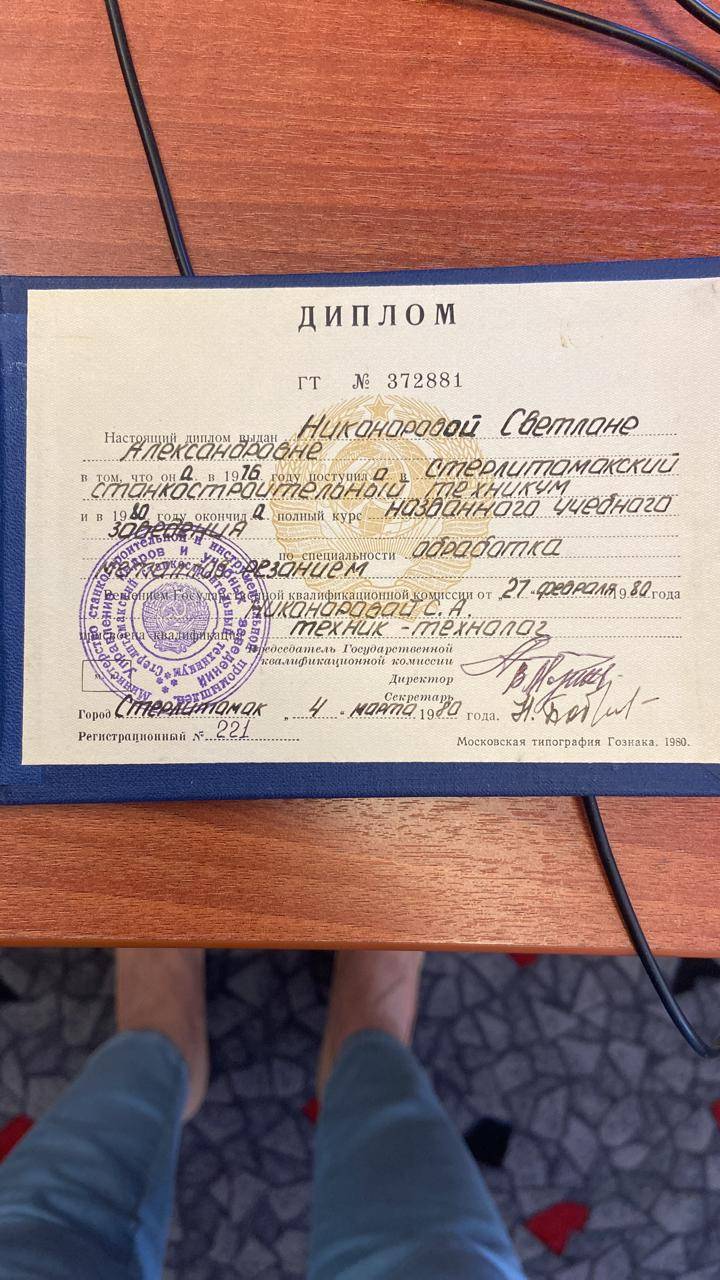 ДИПЛОМ
ГТ № 372881
Настоящий диплом выдан Никаноровой Светлане
Александровне
в том, что она в 1976 году поступила в стерлитамакский
станкостроительный техникум
и в 1980 году окончила полный курс названного учебного
заведения
по специальности обработка
металлов резанием
Решением Государственной квалификационной комиссии от „27" февраля 1980 года
Никаноровой С. А.
присвоена квалификация техник-технолог
Председатель Государственной
квалификационной комиссии
Директор
Секретарь
Город Стерлитамак „4" марта 1980 года.
Регистрационный № 221
Московская типография Гознака. 1980.
Министерство станкостроительной и инструментальной промышлен
Управление кадров и учебных заведений
Стерлитамакский станкостроительный техникум